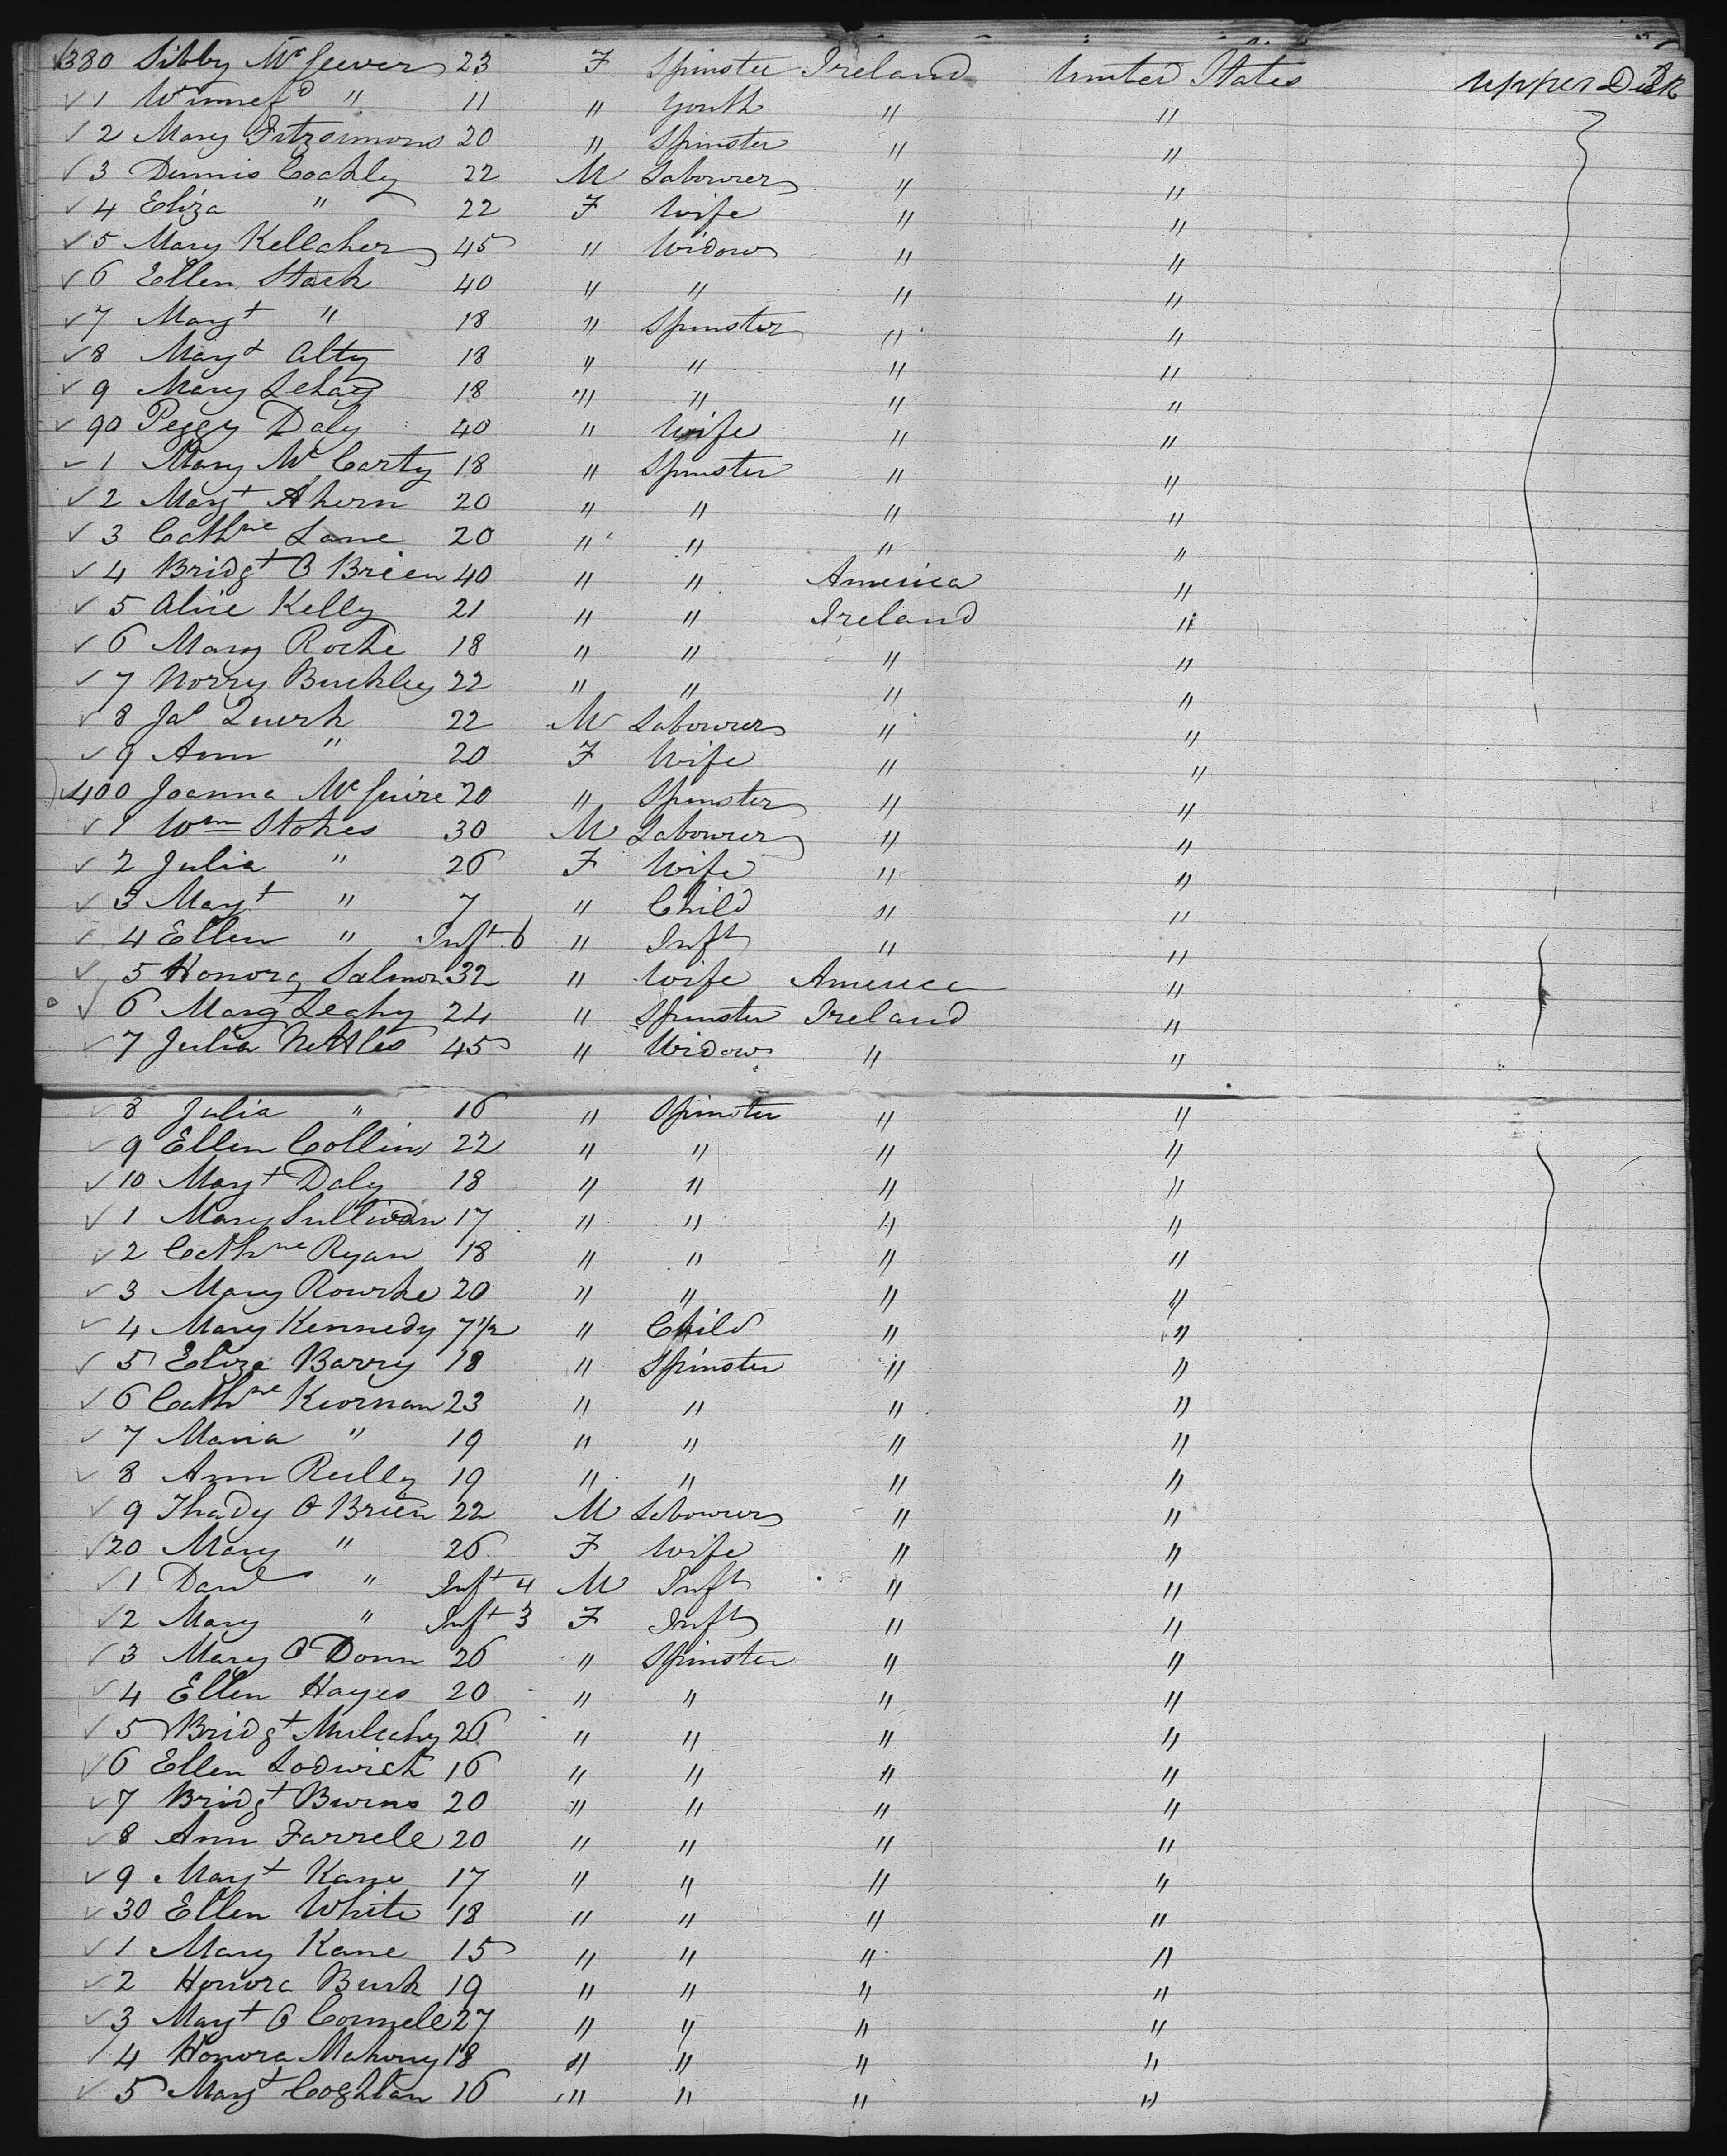 380 Sibby McGeever 23 F Spinster Ireland United States Upper Deck
1 Winnefd " 11 " Youth " "
2 Mary Fitzsimons 20 " Spinster " "
3 Dennis Coakly 22 M Labourer " "
4 Eliza " 22 F Wife " "
5 Mary Kellaher 45 " Widow " "
6 Ellen Stack 40 " " " "
7 Margt " 18 " Spinster " "
8 Margt Alty 18 " " " "
9 Mary Lehay 18 " " " "
90 Peggy Daly 40 " Wife " "
1 Mary McCarty 18 " Spinster " "
2 Margt Ahern 20 " " " "
3 Cathne Lane 20 " " " "
4 Bridgt O Brien 40 " " America "
5 Alice Kelly 21 " " Ireland "
6 Mary Roche 18 " " " "
7 Norry Buckley 22 " " " "
8 Jas Quirk 22 M Labourer " "
9 Ann " 20 F Wife " "
400 Joanna McGuire 20 " Spinster " "
1 Wm Stokes 30 M Labourer " "
2 Julia " 26 F Wife " "
3 Margt " 7 " Child " "
4 Ellen " Inft 6 " Inft " "
5 Honora Salmon 32 " Wife America "
6 Margt Leahy 24 " Spinster Ireland "
7 Julia Nettles 45 " Widow " "
8 Julia " 16 " Spinster " "
9 Ellen Collins 22 " " " "
10 Margt Daly 18 " " " "
1 Mary Sullivan 17 " " " "
2 Cathne Ryan 18 " " " "
3 Mary Rourke 20 " " " "
4 Mary Kennedy 7½ " Child " "
5 Eliza Barry 18 " Spinster " "
6 Cathne Kiernan 23 " " " "
7 Maria " 19 " " " "
8 Ann Reilly 19 " " " "
9 Thady O Brien 22 M Labourer " "
20 Mary " 26 F Wife " "
1 Danl " Inft 4 M Inft " "
2 Mary " Inft 3 F Inft " "
3 Mary O Donn 26 " Spinster " "
4 Ellen Hayes 20 " " " "
5 Bridgt Mulcahy 26 " " " "
6 Ellen Lodwick 16 " " " "
7 Bridgt Burns 20 " " " "
8 Ann Farrell 20 " " " "
9 Margt Kane 17 " " " "
30 Ellen White 18 " " " "
1 Mary Kane 15 " " " "
2 Honora Burk 19 " " " "
3 Margt O Connell 27 " " " "
4 Honora Mahony 18 " " " "
5 Margt Coghlan 16 " " " "